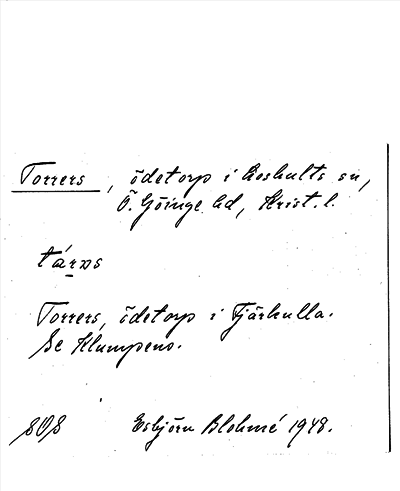 Torrers, ödetorp i Loshults sn,
Ö. Göinge hd, Krist. l.
tárạs
Torrers, ödetorp i Fjärhulla.
Se Klumpens.
808
Esbjörn Blohmé 1948.